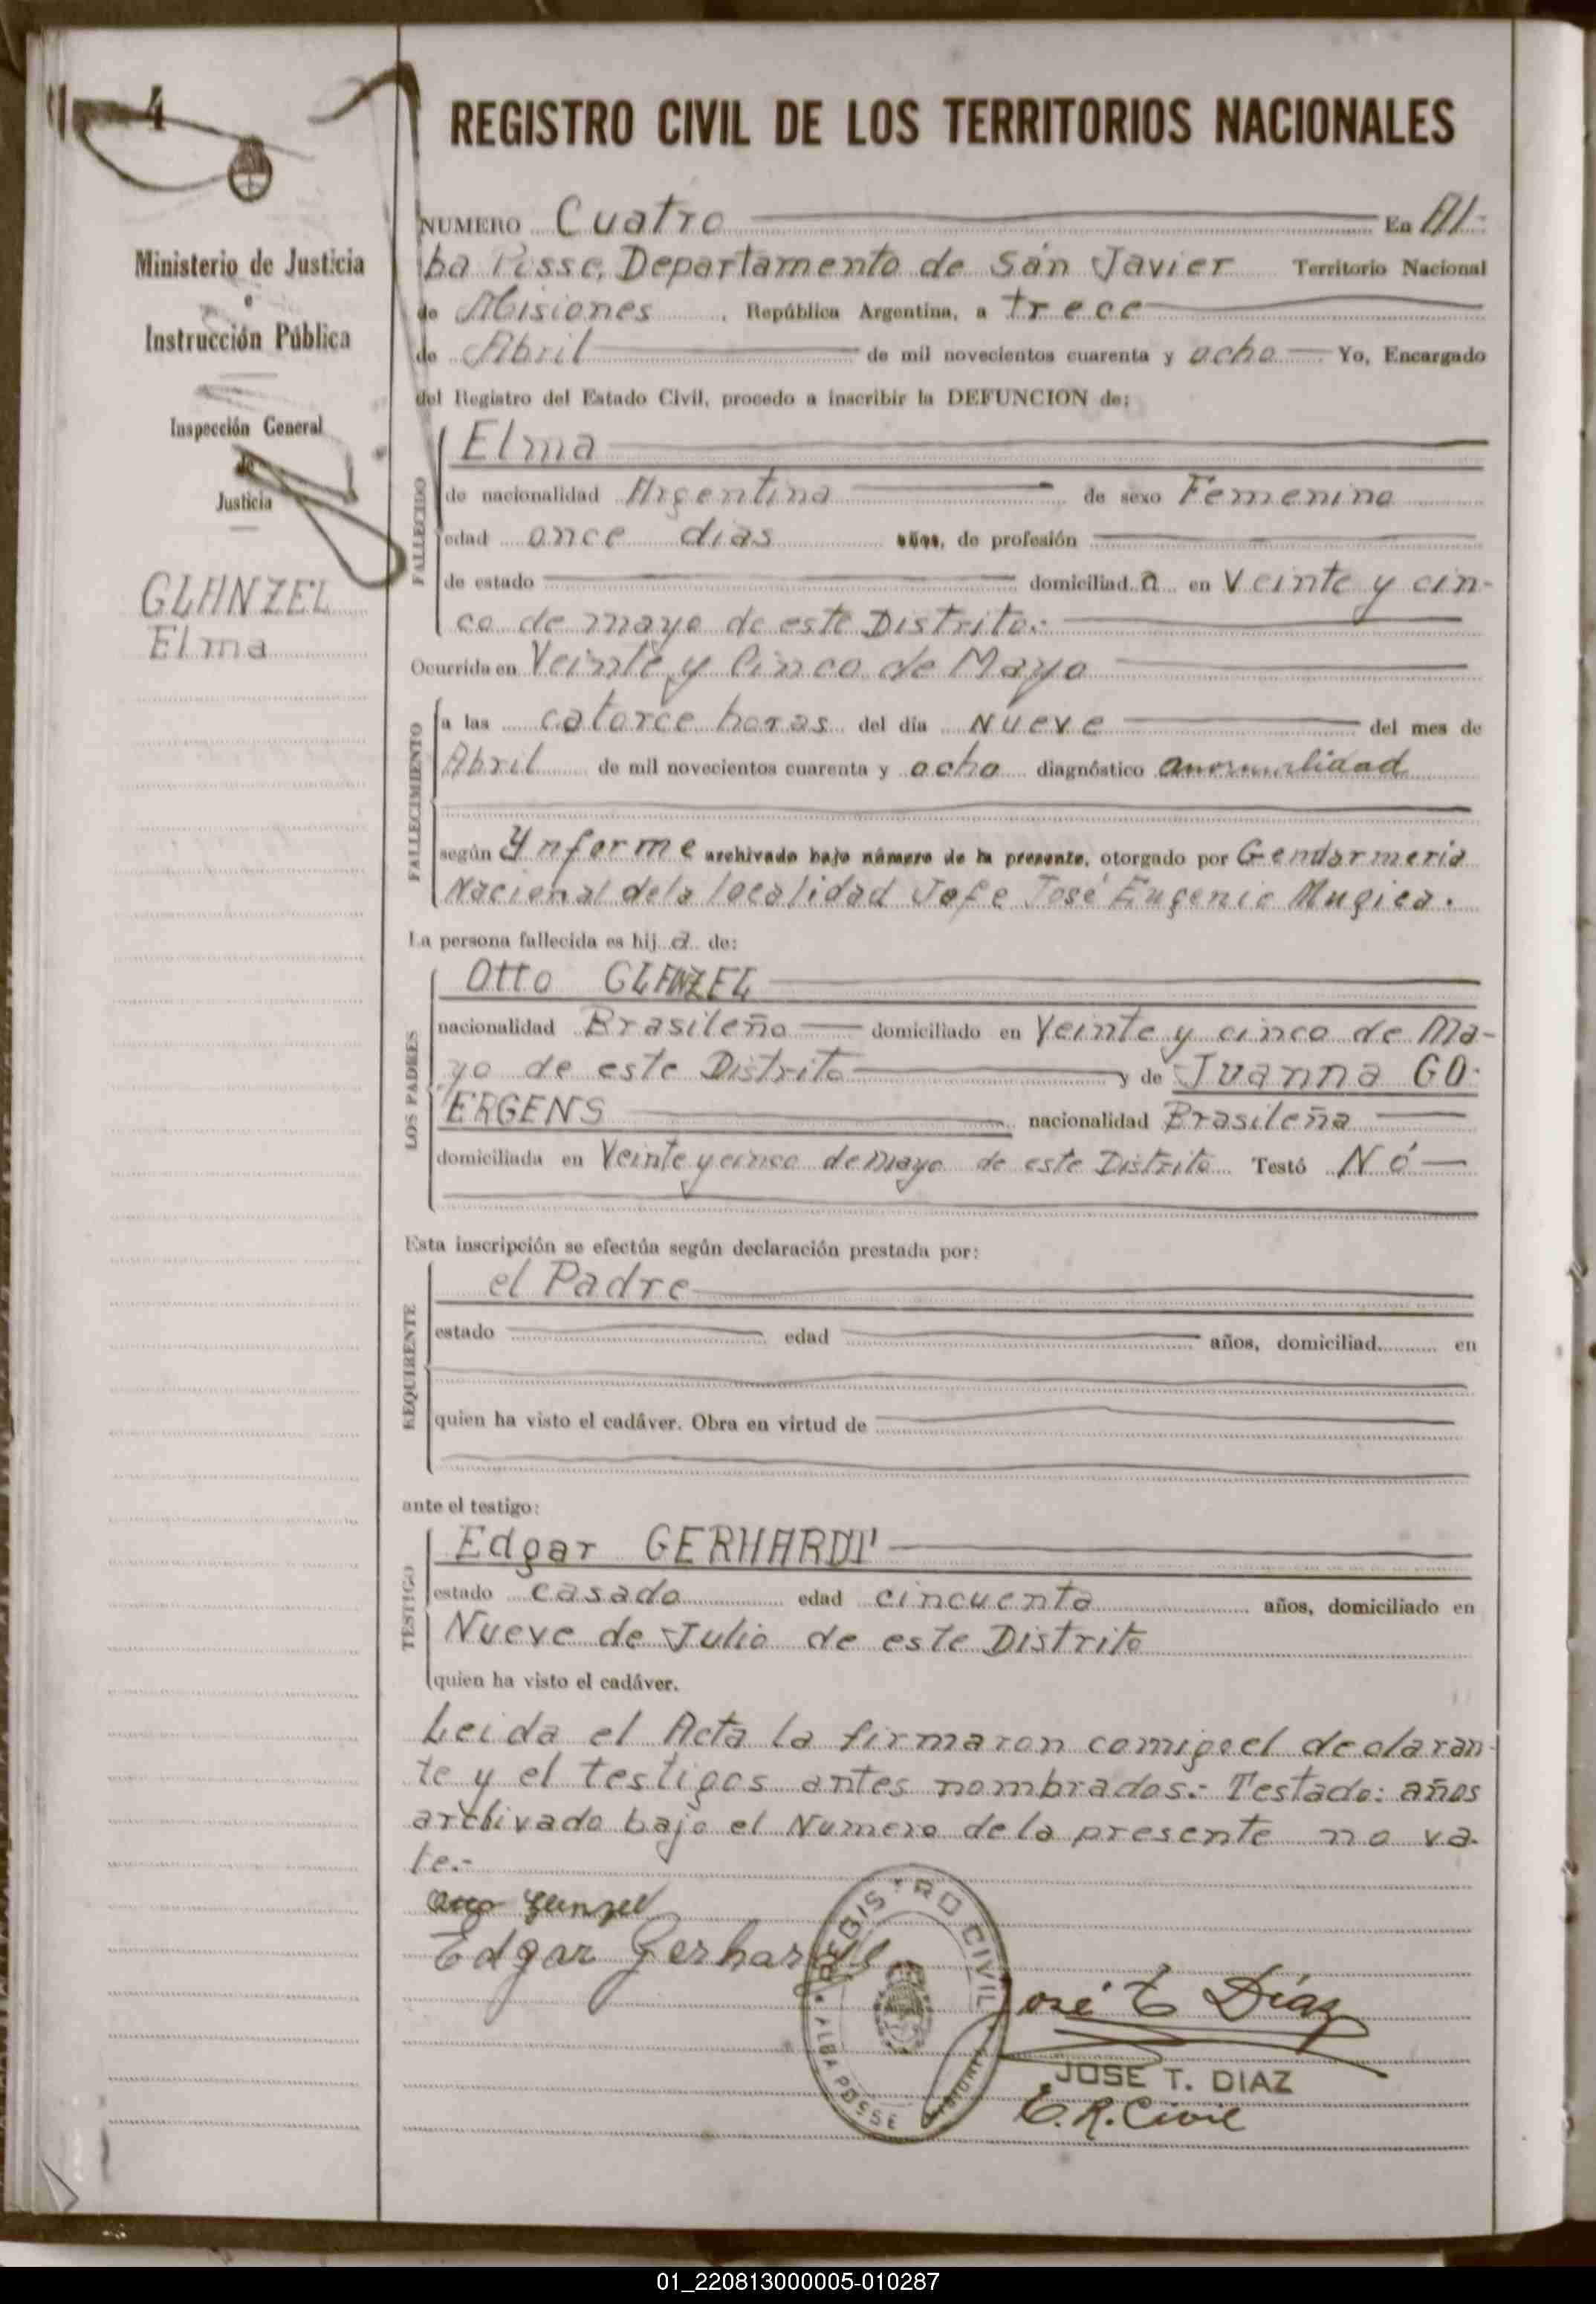 4
REGISTRO CIVIL DE LOS TERRITORIOS NACIONALES
Ministerio de Justicia
e
Instrucción Pública
Inspección General
de
Justicia
GLANZEL
Elma
NUMERO Cuatro En Al-
ba Posse, Departamento de San Javier Territorio Nacional
de Misiones, República Argentina, a trece
de Abril de mil novecientos cuarenta y ocho Yo, Encargado
del Registro del Estado Civil, procedo a inscribir la DEFUNCION de:
FALLECIDO
Elma
de nacionalidad Argentina de sexo Femenino
edad once dias años, de profesión
de estado domiciliad a en Veinte y cin-
co de mayo de este Distrito.-
Ocurrida en Veinte y Cinco de Mayo
FALLECIMIENTO
a las catorce horas del día Nueve del mes de
Abril de mil novecientos cuarenta y ocho diagnóstico anormalidad
según Ynforme archivado bajo número de la presente, otorgado por Gendarmeria
Nacional de la localidad Jefe José Eugenio Mugica.
La persona fallecida es hij a de:
LOS PADRES
Otto GLANZEL
nacionalidad Brasileño domiciliado en Veinte y cinco de Ma-
yo de este Distrito y de Juanna GO-
ERGENS nacionalidad Brasileña
domiciliada en Veinte y cinco de Mayo de este Distrito Testó Nó
Esta inscripción se efectúa según declaración prestada por:
REQUIRENTE
el Padre
estado edad años, domiciliad en
quien ha visto el cadáver. Obra en virtud de
ante el testigo:
TESTIGO
Edgar GERHARDT
estado casado edad cincuenta años, domiciliado en
Nueve de Julio de este Distrito
quien ha visto el cadáver.
Leida el Acta la firmaron comigo el declaran-
te y el testigos antes nombrados.- Testado: años
archivado bajo el Numero de la presente no va-
le.-
Otto Glanzel
Edgar Gerhardt
REGISTRO CIVIL
ALBA POSSE
MISIONES
José T Díaz
JOSE T. DIAZ
E. R. Civil
01_220813000005-010287